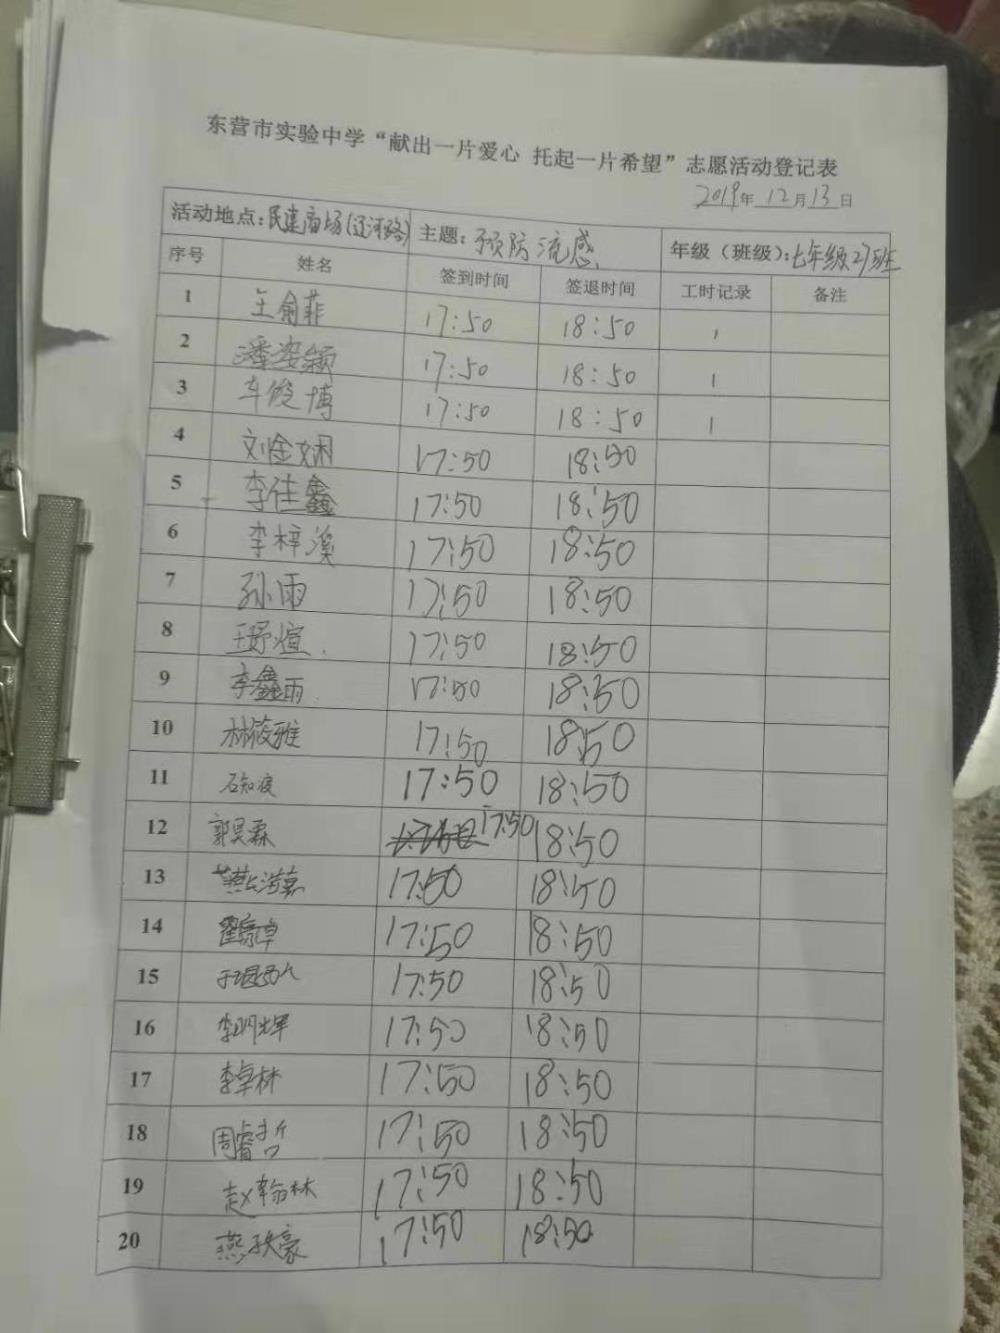 东营市实验中学“献出一片爱心 托起一片希望”志愿活动登记表
2019年 12月13日
活动地点:民建商场(辽河路) 主题:预防流感 年级（班级）:七年级27班
序号 姓名 签到时间 签退时间 工时记录 备注
1 王俞菲 17:50 18:50 1
2 潘姿颖 17:50 18:50 1
3 车俊博 17:50 18:50 1
4 刘金娴 17:50 18:50
5 李佳鑫 17:50 18:50
6 李梓溪 17:50 18:50
7 孙雨 17:50 18:50
8 王野煊 17:50 18:50
9 李鑫雨 17:50 18:50
10 林筱雅 17:50 18:50
11 石知凌 17:50 18:50
12 郭昊霖 17:50 18:50
13 17:50 18:50
14 17:50 18:50
15 17:50 18:50
16 李明辉 17:50 18:50
17 李卓林 17:50 18:50
18 周睿哲 17:50 18:50
19 赵翰林 17:50 18:50
20 燕珙豪 17:50 18:50